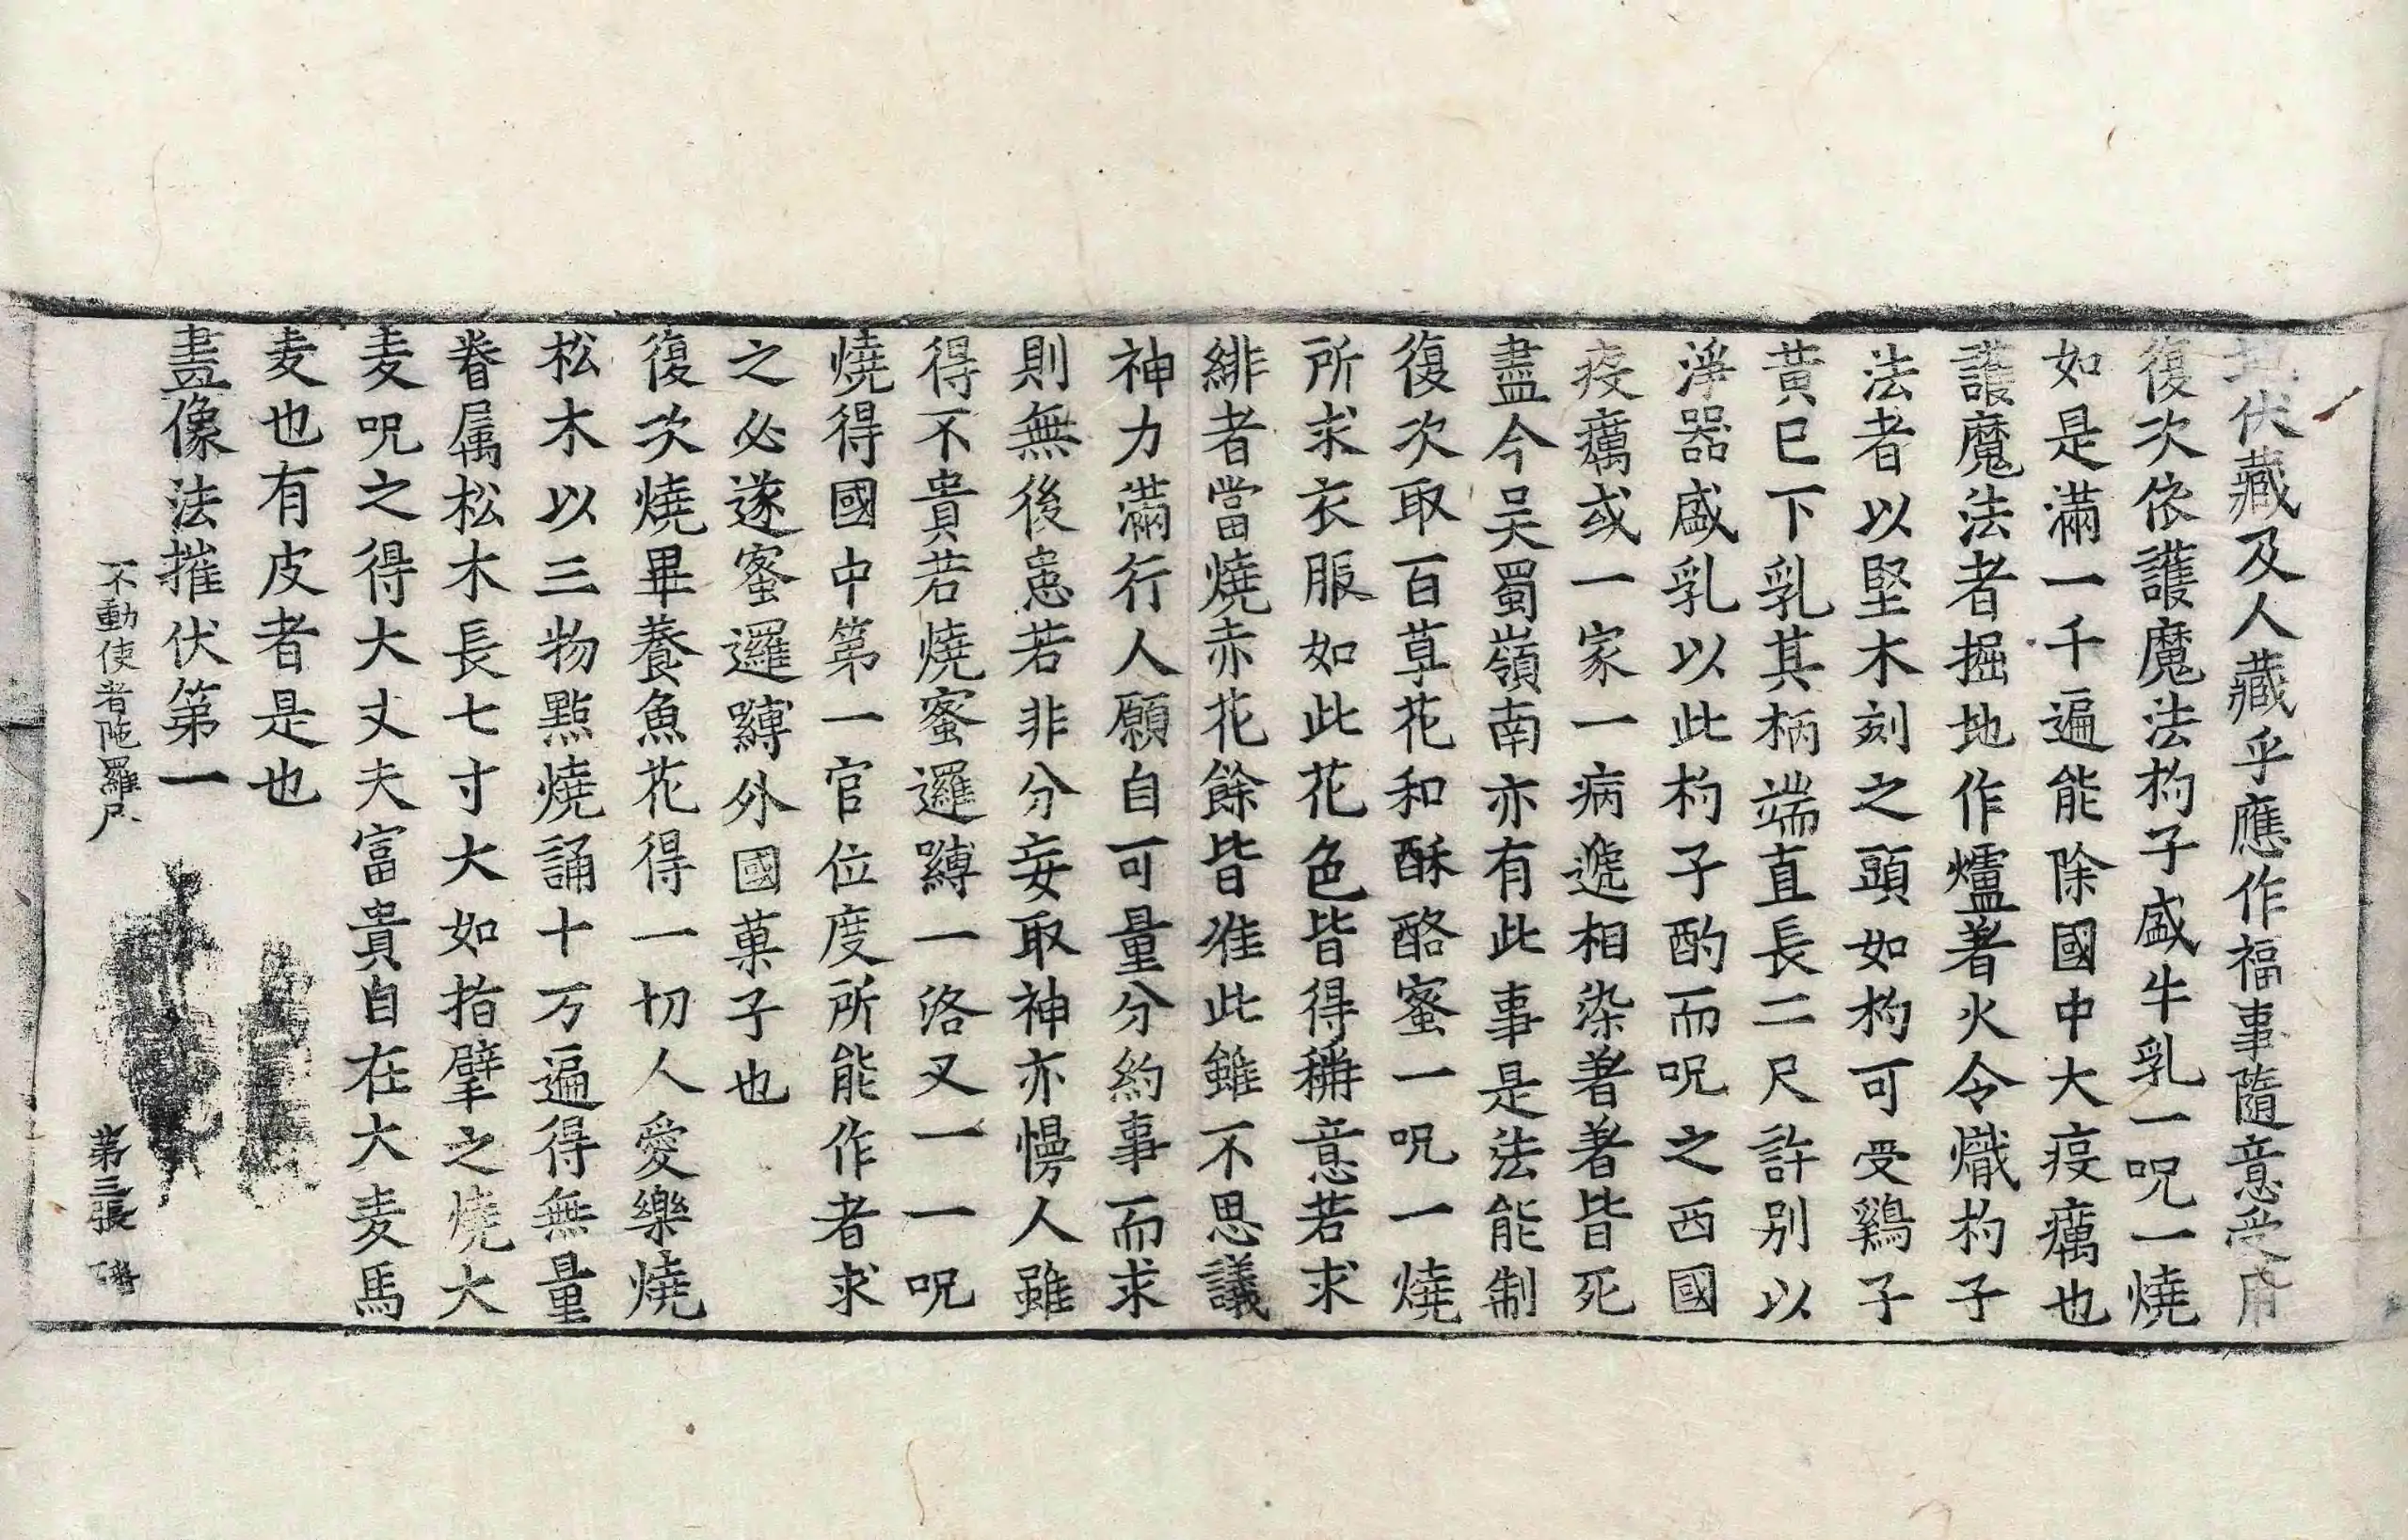 地伏藏及人藏乎應作福事隨意受用
復次依護魔法杓子盛牛乳一呪一燒
如是滿一千遍能除國中大疫癘也
護魔法者掘地作爐著火令熾杓子
法者以堅木刻之頭如杓可受鷄子
黃已下乳其柄端直長二尺許別以
淨器盛乳以此杓子酌而呪之西國
疫癘或一家一病遞相染著著皆死
盡今吴蜀嶺南亦有此事是法能制
復次取百草花和酥酪蜜一呪一燒
所求衣服如此花色皆得稱意若求
緋者當燒赤花餘皆准此雖不思議
神力滿行人願自可量分約事而求
則無後患若非分妄取神亦慢人雖
得不貴若燒蜜邏嚩一洛叉一一呪
燒得國中第一官位度所能作者求
之必遂蜜邏嚩外國菓子也
復次燒畢養魚花得一切人愛樂燒
松木以三物點燒誦十万遍得無量
眷属松木長七寸大如指擘之燒大
麦呪之得大丈夫富貴自在大麦馬
麦也有皮者是也
畫像法摧伏第一
不動使者陁羅尼 第三張